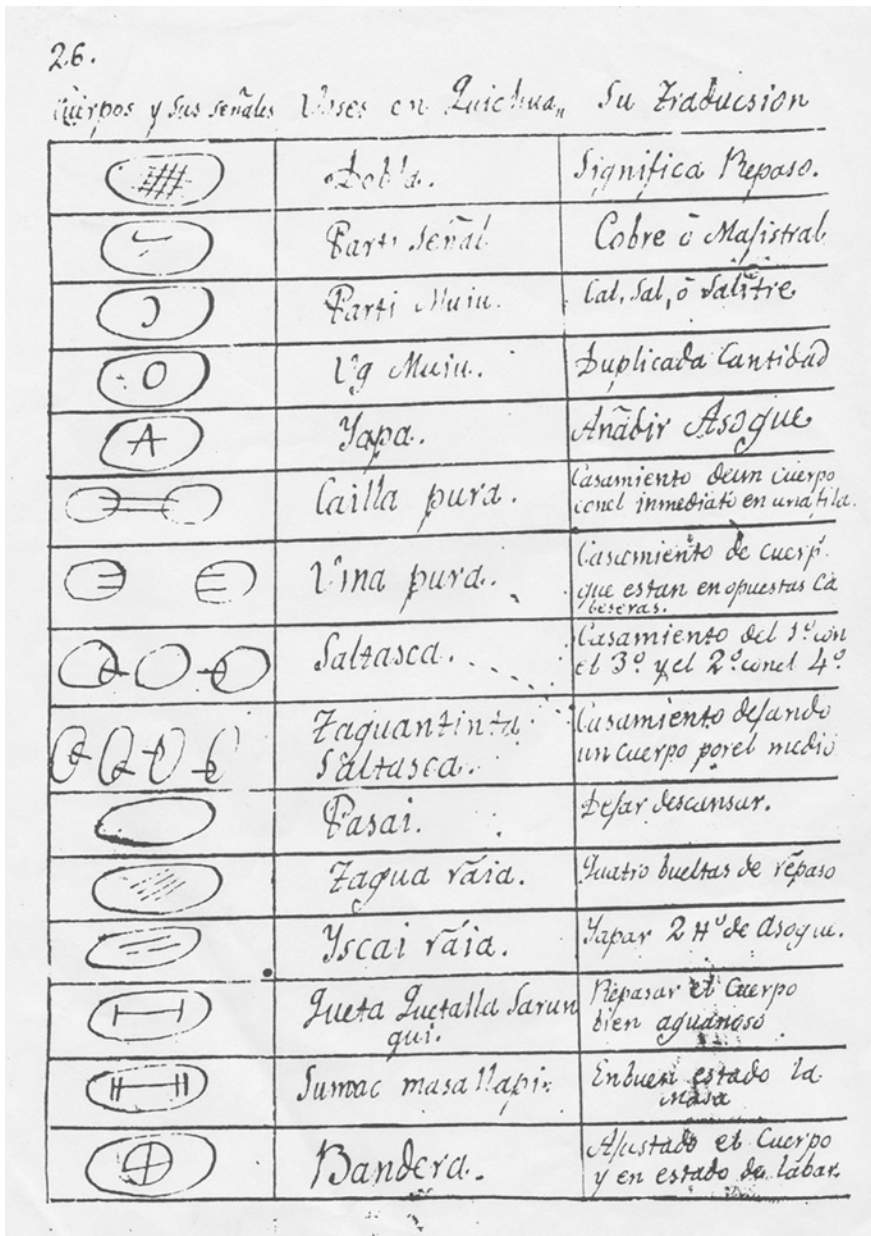 26.
Cuerpos y sus señales Voses en Quichua,, Su Traducsion
Dobla. Significa Repaso.
Parti Señal Cobre ō Majistral
Parti Muiu. Cal, Sal, ō Salitre
Vg Muiu. Duplicada Cantidad
A Yapa. Añadir Asogue
Cailla pura. Casamiento deun cuerpo
conel inmediato en una fila.
Vina pura. Casamiento de cuerp.
que estan en opuestas Ca
beseras.
Saltasca. Casamiento del 1º con
el 3º y el 2º conel 4º
Taguantinta Casamiento dejando
Saltasca. un cuerpo porel medio
Pasai. Dejar descansar.
Tagua raia. Quatro bueltas de repaso
Yscai raia. Yapar 2 de asogue.
Queta Quetalla Sarun Repasar el Cuerpo
qui. bien aguanoso
Sumac masa llapi. Enbuen estado la
masa
Bandera. Ajustado el Cuerpo
y en estado de labar.